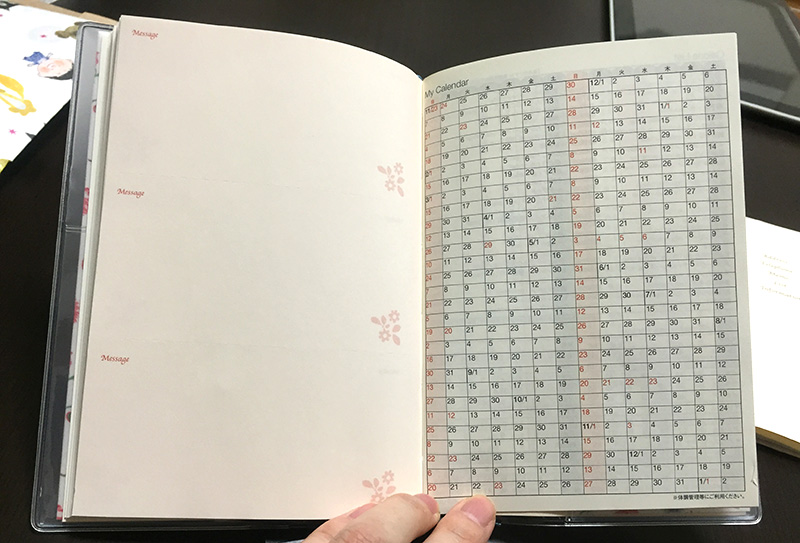 Message
Message
Message
My Calendar
日 月 火 水 木 金 土 日 月 火 水 木 金 土
11/23 24 25 26 27 28 29 30 12/1 2 3 4 5 6
7 8 9 10 11 12 13 14 15 16 17 18 19 20
21 22 23 24 25 26 27 28 29 30 31 1/1 2 3
4 5 6 7 8 9 10 11 12 13 14 15 16 17
18 19 20 21 22 23 24 25 26 27 28 29 30 31
2/1 2 3 4 5 6 7 8 9 10 11 12 13 14
15 16 17 18 19 20 21 22 23 24 25 26 27 28
3/1 2 3 4 5 6 7 8 9 10 11 12 13 14
15 16 17 18 19 20 21 22 23 24 25 26 27 28
29 30 31 4/1 2 3 4 5 6 7 8 9 10 11
12 13 14 15 16 17 18 19 20 21 22 23 24 25
26 27 28 29 30 5/1 2 3 4 5 6 7 8 9
10 11 12 13 14 15 16 17 18 19 20 21 22 23
24 25 26 27 28 29 30 31 6/1 2 3 4 5 6
7 8 9 10 11 12 13 14 15 16 17 18 19 20
21 22 23 24 25 26 27 28 29 30 7/1 2 3 4
5 6 7 8 9 10 11 12 13 14 15 16 17 18
19 20 21 22 23 24 25 26 27 28 29 30 31 8/1
2 3 4 5 6 7 8 9 10 11 12 13 14 15
16 17 18 19 20 21 22 23 24 25 26 27 28 29
30 31 9/1 2 3 4 5 6 7 8 9 10 11 12
13 14 15 16 17 18 19 20 21 22 23 24 25 26
27 28 29 30 10/1 2 3 4 5 6 7 8 9 10
11 12 13 14 15 16 17 18 19 20 21 22 23 24
25 26 27 28 29 30 31 11/1 2 3 4 5 6 7
8 9 10 11 12 13 14 15 16 17 18 19 20 21
22 23 24 25 26 27 28 29 30 12/1 2 3 4 5
6 7 8 9 10 11 12 13 14 15 16 17 18 19
20 21 22 23 24 25 26 27 28 29 30 31 1/1 2
※体調管理等にご利用ください。